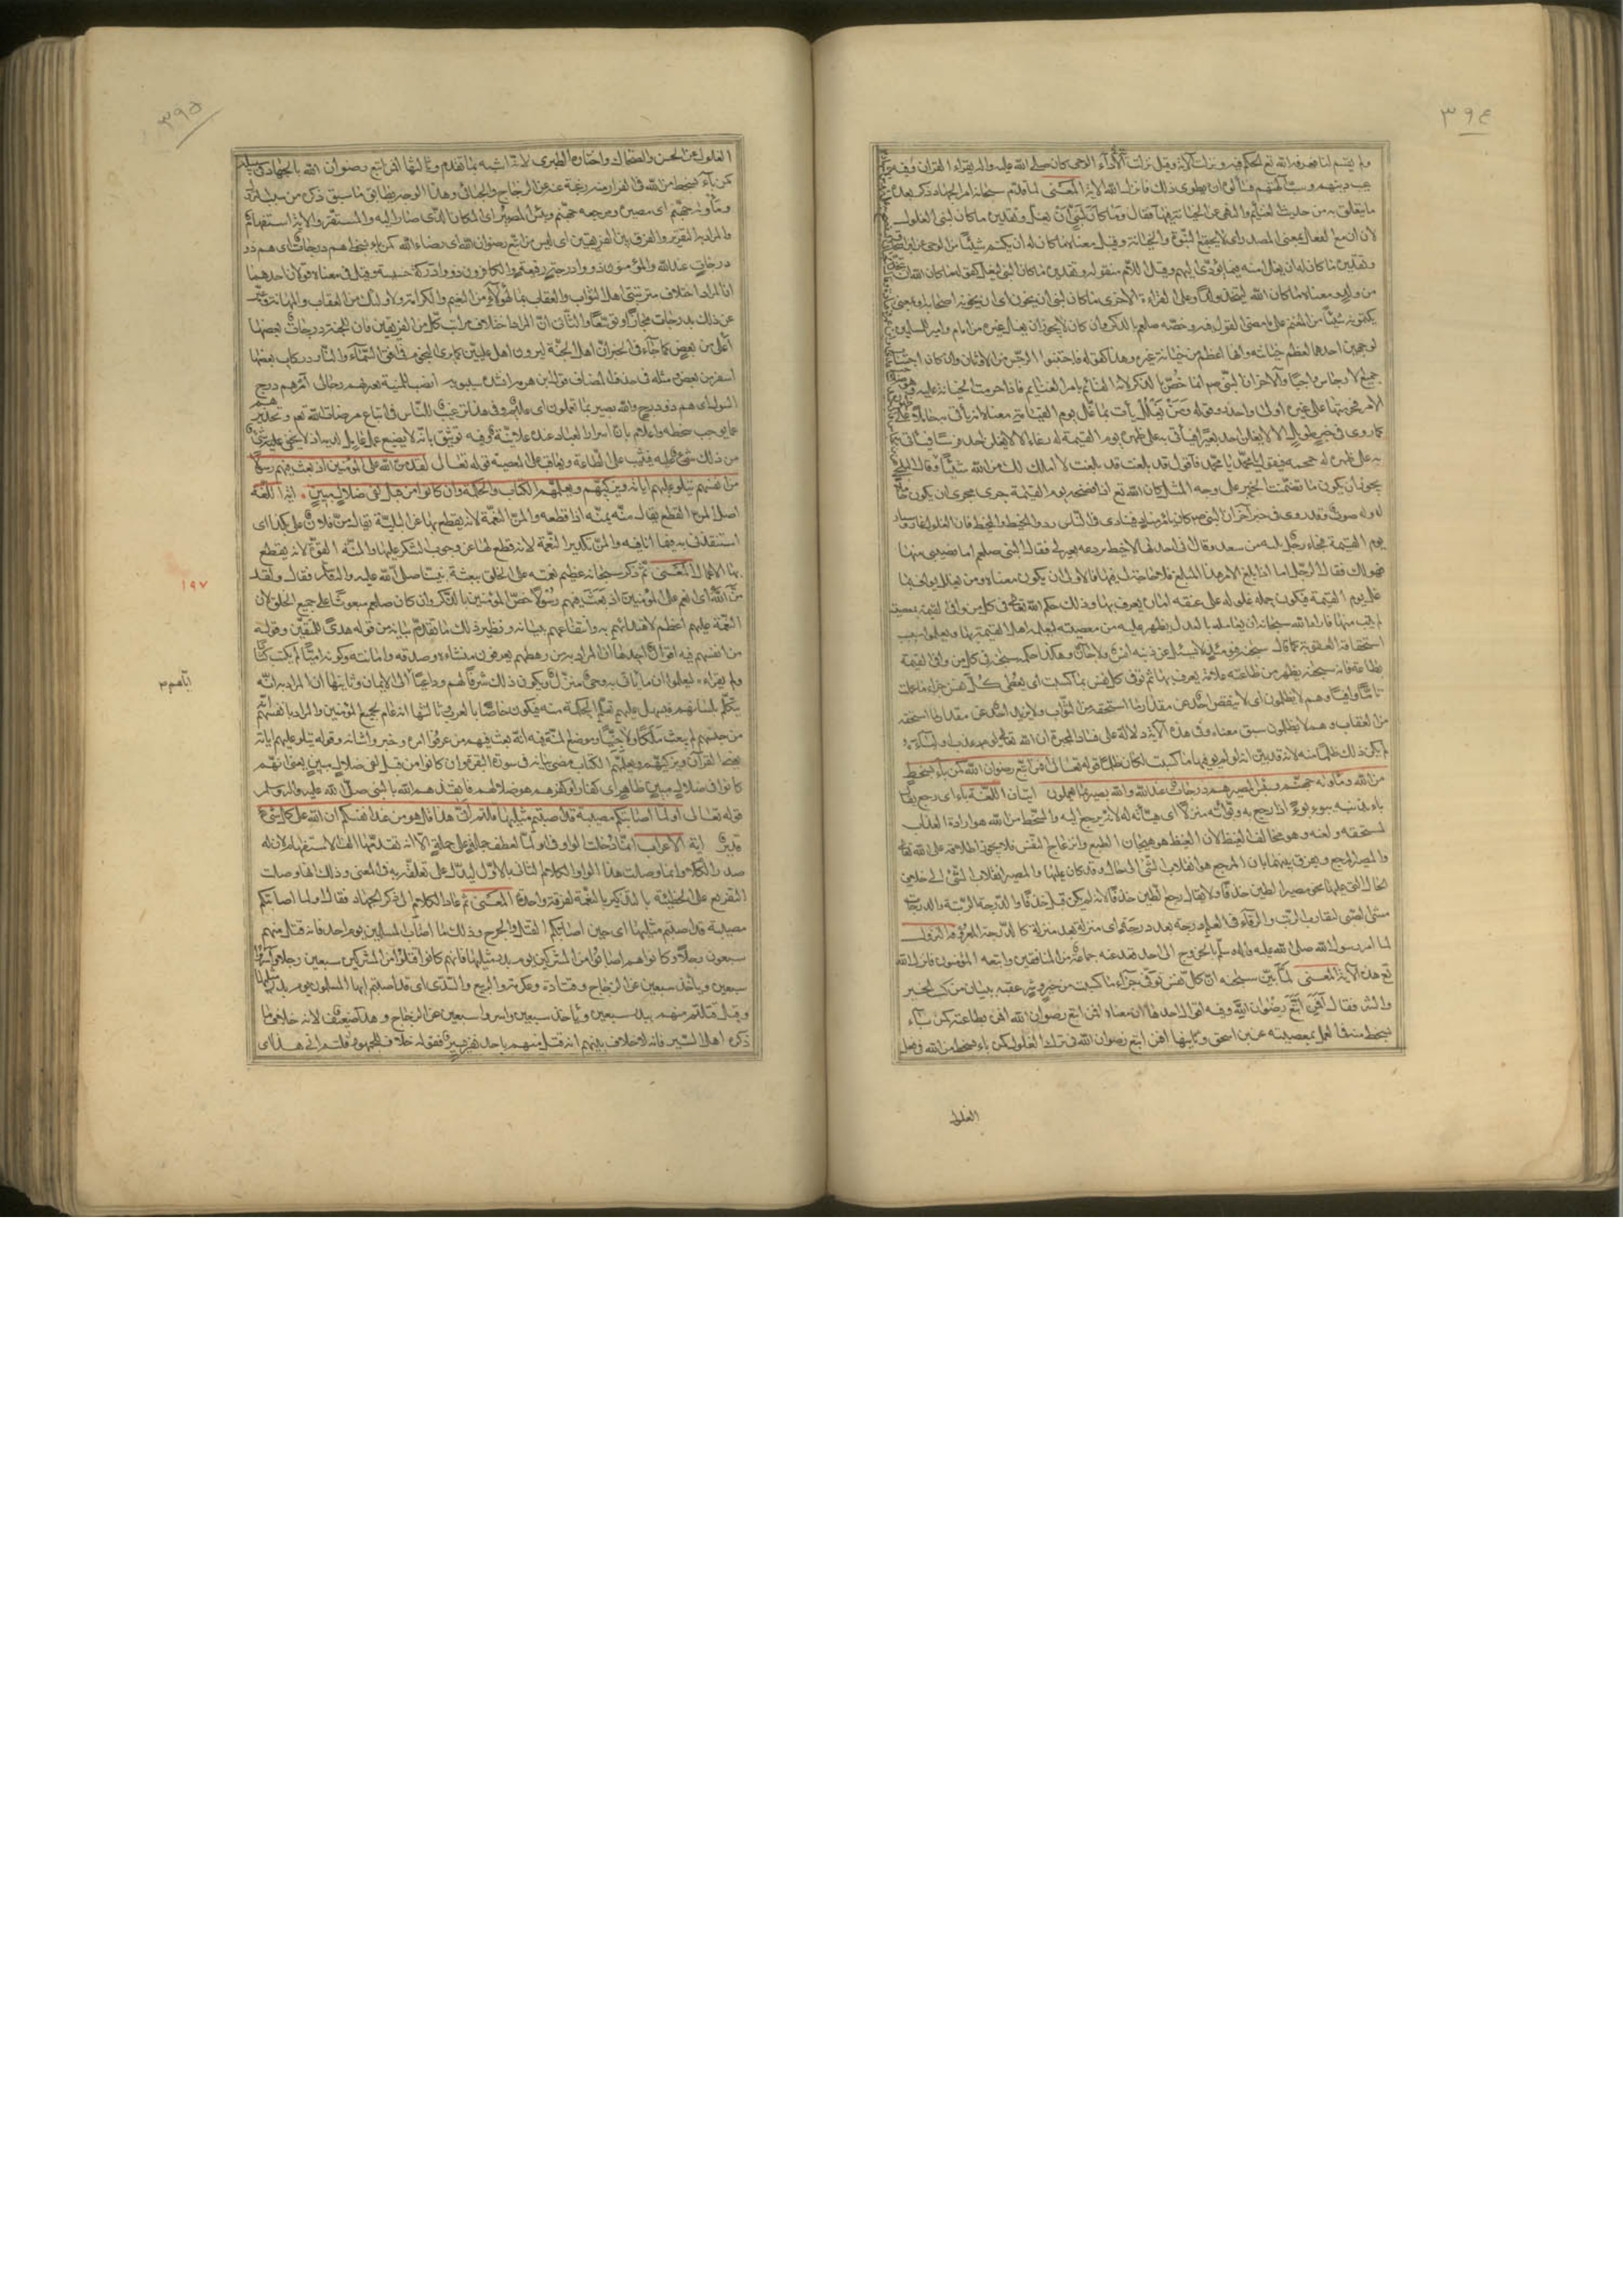 ٣٩٤
ولم يقسم لنا فعرفه الله تع الحكم فيه ونزلت الآية وقيل نزلت في اداء الوحي كان صلى الله عليه واله يقراء القران وفيه
عيب دينهم وسب آلهتهم فسألوه ان يطوى ذلك فانزل الله الاية المعنى لما قدم سبحانه امر الجهاد ذكر بعده
ما يتعلق به من حديث الغنائم والنهى عن الخيانة فيها فقال وما كان لنبي ان يغل وتقديره ما كان لنبي الغلول
لان ان مع الفعل بمعنى المصدر اى لا يجتمع النبوة والخيانة وقيل معناه ما كان له ان يكتم شيئا من الوحى عن ابن
وتقديره ما كان له ان يغل امته فيما يؤدى اليهم وقيل اللام منقوله وتقديره ما كان النبي ليغل كقوله ما كان الله ان يتخذ
من ولد ومعناه ما كان الله ليتخذ ولدا وعلى القراءة الاخرى ما كان لنبي ان يخون اى ان يخونه اصحابه او بمعنى
يكتمونه شيئا من المغنم على ما مضى القول فيه وخصه صلعم بالذكر وان كان لا يجوز ان يغل غيره من امام وامير المسلمين
لوجهين احدهما لعظم خيانته وانها اعظم من خيانة غيره وهذا كقوله فاجتنبوا الرجس من الاوثان وان كان اجتناب
جميع الارجاس واجبا والآخر ان النبي صم انما خص بالذكر لانه القائم بامر الغنايم فاذا حرمت الخيانة عليه وهو صاحب
الامر فحرمتها على غيره اولى واحذر وقوله ومن يغلل يأت بما غل يوم القيامة معناه انه يأتى به حاملا على
كما روى في خبر طويل الا لا يغلن احد بعيرا فيأتي به على ظهره يوم القيمة له رغاء الا لا يغلن احد فرسا فيأتي
به على ظهره له حمحمة فيقول يا محمد يا محمد فاقول قد بلغت قد بلغت لا املك لك من الله شيئا وقال البلخي
يجوز ان يكون ما تضمنت الخبر على وجه المثل كان الله تع اذا فضحه يوم القيمة جرى مجرى ان يكون حاملا
له وله صوت وقد روى في خبر آخر ان النبي صم كان يأمر مناديا فينادى في الناس ردوا الخيط والمخيط فان الغلول عار وشنار
يوم القيمة فجاء رجل بكبة من شعر وقال انى اخذتها لاخيط بردعة بعير لى فقال النبي صلعم اما نصيبى منها
فهو لك فقال الرجل اما اذا بلغ الامر هذا المبلغ فلا حاجة لى فيها والاولى ان يكون معناه ومن يغلل يواف بما
غل يوم القيمة فيكون حمله غلوله على عنقه امارة يعرف بها وذلك حكم الله تعالى في كل من وافى القيمة بمعصية
لم يتب منها فاراد الله سبحانه ان يعامله بالعدل يظهر عليه من معصيته ليعلمه اهل القيمة بها ويعلموا سبب
استحقاقه العقوبة كما قال سبحانه فيومئذ لا يسئل عن ذنبه انس ولا جان وهكذا حكمه سبحنه في كل من وافى القيمة
بطاعة فانه سبحنه يظهر من طاعته علامة يعرف بها ثم توفى كل نفس بما كسبت اى يعطى كل نفس جزاء ما عملت
تاما وافيا وهم لا يظلمون اى لا ينقص احد عن مقدار ما استحقه من الثواب ولا يزيد احد عن مقدار ما استحقه
من العقاب وهم لا يظلمون سبق معناه وفي هذه الآية دلالة على فساد المجبرة ان الله تعالى لو عذب اولياءه
لم يكن ذلك ظلما منه لانه قد بين انه لو لم يوفها ما كسبت لكان ظلما قوله تعالى افمن اتبع رضوان الله كمن باء بسخط
من الله ومأونه جهنم وبئس المصير هم درجات عند الله والله بصير بما يعملون ايتان اللغة باء اى رجع يقال
باء بذنبه يبوء بوءا اذا رجع به وبوأته منزلا اى هيأته له لانه يرجع اليه والسخط من الله هو ارادة العذاب
لمستحقه ولعنه وهو مخالف الغيظ لان الغيظ هو هيجان الطبع وانزعاج النفس فلا يجوز اطلاقه على الله تعالى
والمصير المرجع ويفرق بينهما بان المرجع هو انقلاب الشئ الى حال قد كان عليها والمصير انقلاب الشئ الى خلاف
الحال التي عليها نحو مصير الطين خزفا ولا يقال رجع الطين خزفا لانه لم يكن قبل خزفا والدرجة الرتبة والدرجان
مشى الصبى لتقارب الرتب والترقى في العلم درجة بعد درجة اى منزلة بعد منزلة كالدرجة المعروفة النزول
لما امر رسول الله صلى الله عليه واله وسلم بالخروج الى احد قعد عنه جماعة من المنافقين واتبعه المؤمنون فانزل الله
تع هذه الآية المعنى لما بين سبحنه ان كل نفس توفى جزاء ما كسبت من خير وشر عقبه ببيان من كسب الخير
والشر فقال افمن اتبع رضوان الله وفيه اقوال احدها ان معناه افمن اتبع رضوان الله افى بطاعته كمن باء
بسخط منه في العمل بمعصيته عن ابن اسحق وثانيها افمن اتبع رضوان الله في ترك الغلول كمن باء بسخط من الله في فعل
الغلول
٣٩٥
الغلول عن الحسن والضحاك واختاره الطبري لانه اشبه بما تقدم وثالثها افمن اتبع رضوان الله بالجهاد في سبيله
كمن باء بسخط من الله في الفرار منه رغبة عنه عن الزجاج والجبائى وهذا الوجه يطابق ما سبق ذكره من
ومأونه جهنم اى مصيره ومرجعه جهنم وبئس المصير اى المكان الذى صار اليه والمستقر والاية استفهام
والمراد به التقرير والفرق بين الفريقين اى ليس من اتبع رضوان الله اى رضاء الله كمن باء بسخطه هم درجات اى هم ذو
درجات عند الله والمؤمنون ذووا درجة رفيعة والكافرون ذووا دركة خسيسة وقيل في معناه قولان احدهما
ان المراد اختلاف مرتبتى اهل الثواب والعقاب بما لهؤلاء من النعيم والكرامة ولاولئك من العقاب والمهانة وعبر
عن ذلك بدرجات مجازا وتوسعا والثاني ان المراد اختلاف مراتب كل من الفريقين فان للجنة درجات بعضها
اعلى من بعض كما جاء في الخبر ان اهل الجنة ليرون اهل عليين كما يرى النجم في افق السماء والنار دركات بعضها
اسفل من بعض ومثله في حذف المضاف قول ابن هرمة انشده سيبويه انصب للمنية تعتريهم رجالى ام هم درج
السيول اى هم ذوو درج والله بصير بما تعملون اى عليم وفي هذا ترغيب للناس في اتباع مرضات الله تعم وتحذير
عما يوجب سخطه واعلام بان اسرار العباد عنده علانية وفيه توثيق بانه لا يضيع عمل عامل لديه اذ لا يخفى عليه شئ
من ذلك شئ عمله فيثيب على الطاعة ويعاقب على المعصية قوله تعالى لقد من الله على المؤمنين اذ بعث فيهم رسولا
من انفسهم يتلو عليهم اياته ويزكيهم ويعلمهم الكتاب والحكمة وان كانوا من قبل لفى ضلال مبين اية اللغة
اصل المن القطع يقال منه يمنه اذا قطعه والمن النعمة لانه يقطع بها عن البلية يقال من فلان على بكذا اى
استنقذنى به مما انا فيه والمن تكدير النعمة لانه قطع لها عن وجوب الشكر عليها والمنة القوة لانه يقطع
بها الاعمال المعنى ثم ذكر سبحانه عظيم نعمته على الخلق ببعثة نبينا صلى الله عليه واله فقال ولقد
من الله اى انعم على المؤمنين اذ بعث فيهم رسولا خص المؤمنين بالذكر وان كان صلعم مبعوثا على جميع الخلق لان
النعمة عليهم اعظم لاهتدائهم به وانتفاعهم ببيانه ونظير ذلك ما تقدم بيانه من قوله هدى للمتقين وقوله
من انفسهم فيه اقوال احدها ان المراد به من رهطهم يعرفون منشاءه وصدقه وامانته وكونه اميا لم يكتب كتابا
ولم يقراءه ليعلموا ان ما يأتى به وحى منزل ويكون ذلك شرفا لهم وداعيا الى الايمان وثانيها ان المراد به انه
يتكلم بلسانهم فيسهل عليهم تعلم الحكمة منه فيكون خاصا بالعرب وثالثها انه عام لجميع المؤمنين والمراد بانفسهم انه
من جنسهم لم يبعث ملكا ولا جنيا وموضع المنة فيه انه بعث فيهم من عرفوا امره وخبروا شانه وقوله يتلو عليهم اياته
يعنى القرآن ويزكيهم ويعلمهم الكتاب مضى بيانه في سورة البقرة وان كانوا من قبل لفى ضلال مبين يعنى انهم
كانوا في ضلال مبين ظاهر اى كفار او كفرهم هو ضلالهم فانقذهم الله بالنبي صلى الله عليه واله وسلم
قوله تعالى اولما اصابتكم مصيبة قد اصبتم مثليها قلتم انى هذا قل هو من عند انفسكم ان الله على كل شئ
قدير اية الاعراب انما دخلت الواو في اولما لعطف جملة على جملة الا انه تقدمها الف الاستفهام لان له
صدر الكلام وانما وصلت هذا الواو الكلام الثاني بالاول ليدل على تعلقه به في المعنى وذلك انها وصلت
التقريع على الخطيئة بالتذكير بالنعمة لفرقة واحدة المعنى ثم عاد الكلام الى ذكر الجهاد فقال اولما اصابتكم
مصيبة قد اصبتم مثليها اى حين اصابكم القتل والجرح وذلك ما اصاب المسلمين يوم احد فانه قتل منهم
سبعون رجلا وكانوا هم اصابوا من المشركين يوم بدر مثليها فانهم كانوا قتلوا من المشركين سبعين رجلا واسروا
سبعين عن الزجاج وقتادة وعكرمة والربيع والسدى اى قد اصبتم ايها المسلمون يوم بدر مثليها
وقيل قتلتم منهم ببدر سبعين وباحد سبعين واسروا سبعين عن الزجاج وهذا ضعيف لانه خلاف ما
ذكره اهل السير فانه لا خلاف بينهم انه قتل منهم باحد نفر يسير فقوله خلاف الجمهور قلتم انى هذا اى
١٩٧